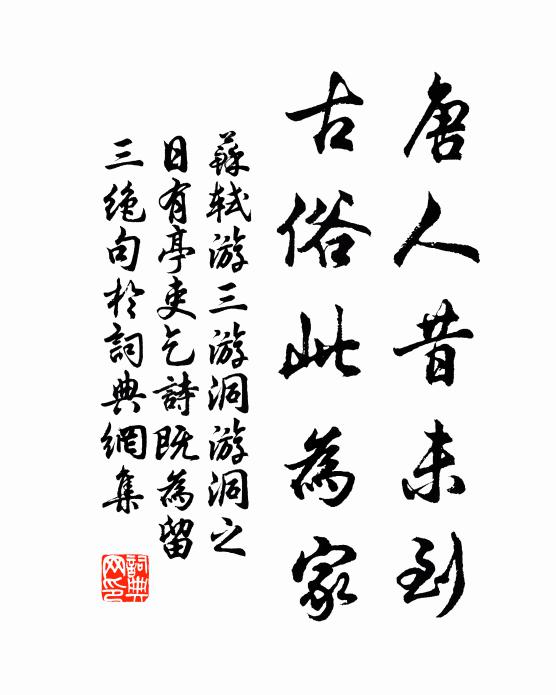 唐人昔未到
古俗此為家
蘇軾游三游洞游洞之
日有亭吏乞詩既為留
三絶句於詞典網集
詞典网印